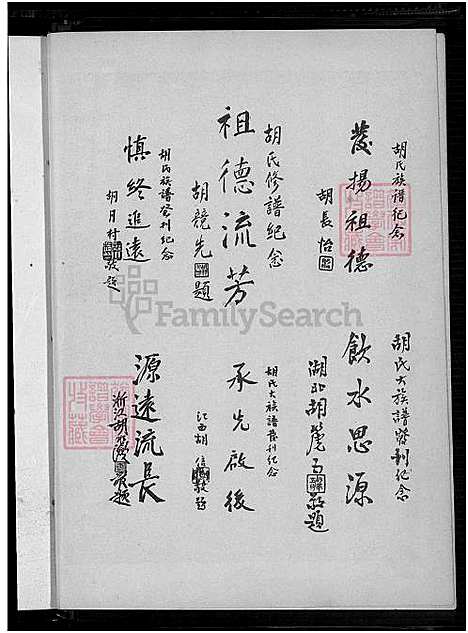 胡氏族譜紀念
發揚祖德
胡長怡
胡氏修譜紀念
祖德流芳
胡競先題
胡氏族譜發刊紀念
慎終追遠
胡月村敬題
胡氏大族譜發刊紀念
飲水思源
湖北胡 題
胡氏大族譜發刊紀念
承先啟後
江西胡 敬題
源遠流長
浙江胡 題
FamilySearch